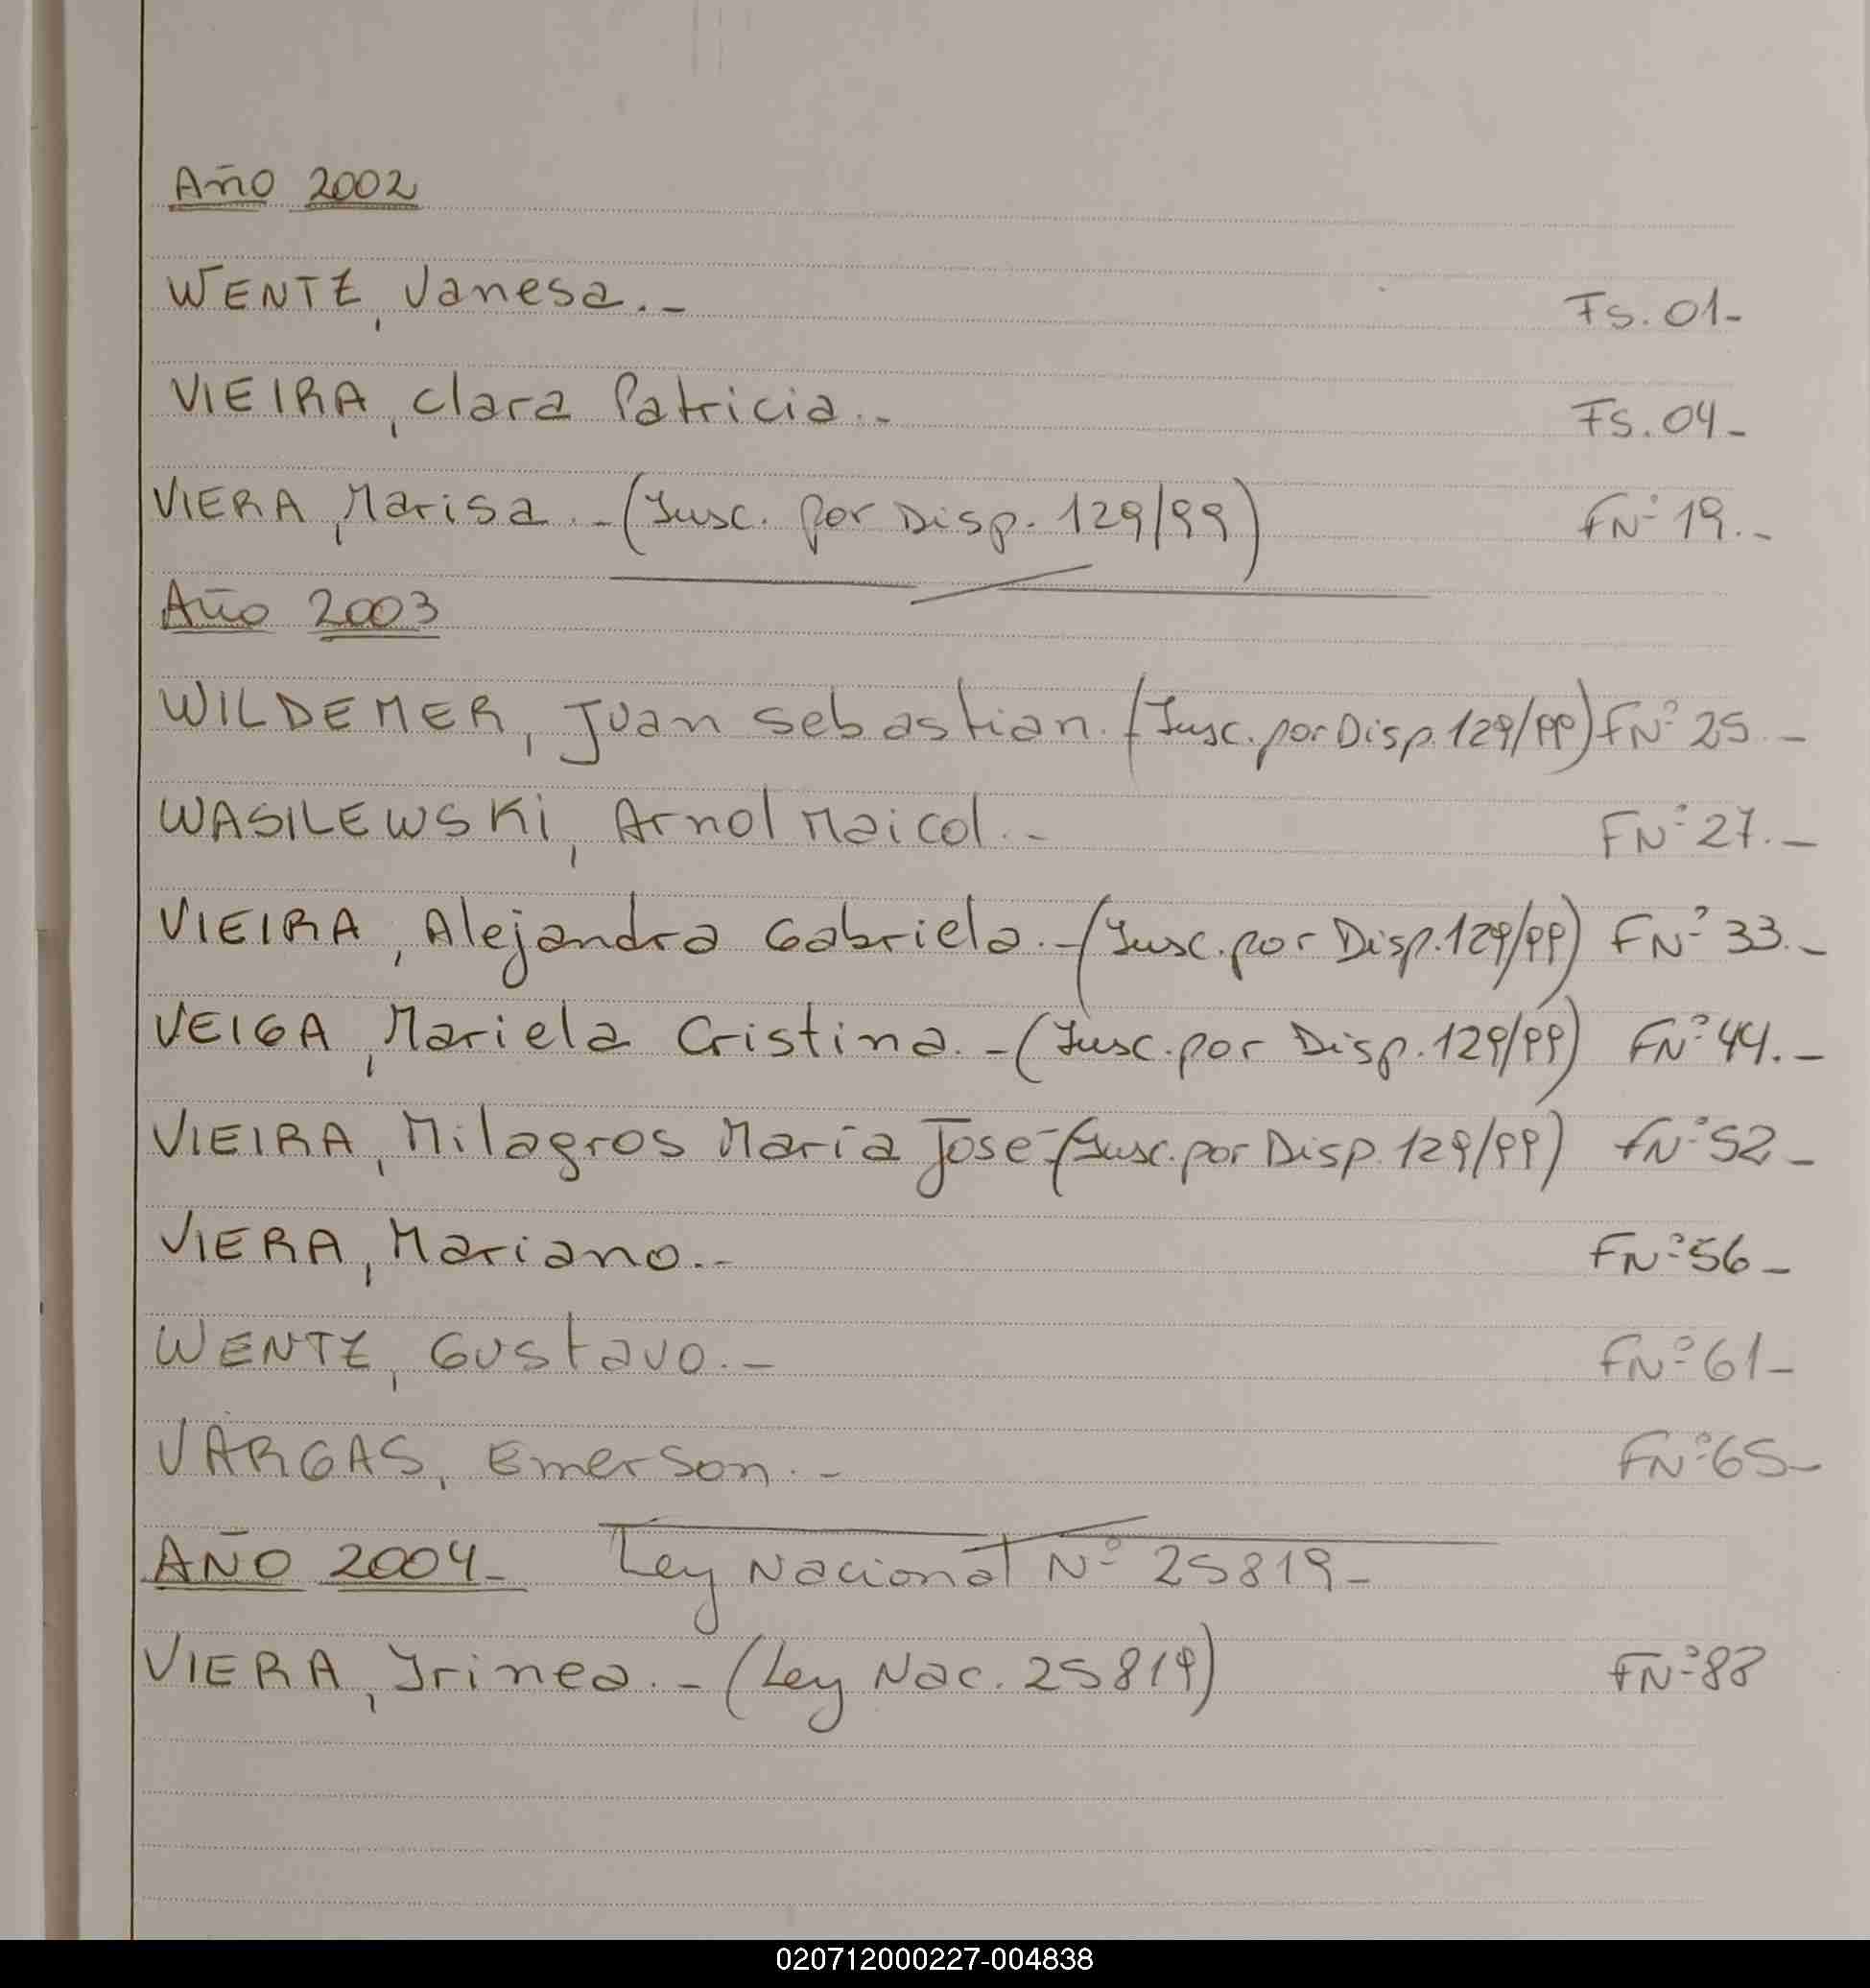 Año 2002
WENTZ, Vanesa.- Fs. 01-
VIEIRA, Clara Patricia.- Fs. 04-
VIERA, Marisa.-(Insc. por Disp. 129/99) FNº 19.-
Año 2003
WILDEMER, Juan Sebastian.(Insc. por Disp. 129/99) FNº 25.-
WASILEWSKi, Arnol Maicol.- FNº 27.-
VIEIRA, Alejandra Gabriela.-(Insc. por Disp. 129/99) FNº 33.-
VEIGA, Mariela Cristina.-(Insc. por Disp. 129/99) FNº 44.-
VIEIRA, Milagros María José-(Insc. por Disp. 129/99) FNº 52-
VIERA, Mariano.- FNº 56-
WENTZ, Gustavo.- FNº 61-
VARGAS, Emerson.- FNº 65-
AÑO 2004- Ley Nacional Nº 25819-
VIERA, Irinea.-(Ley Nac. 25819) FNº 88
020712000227-004838